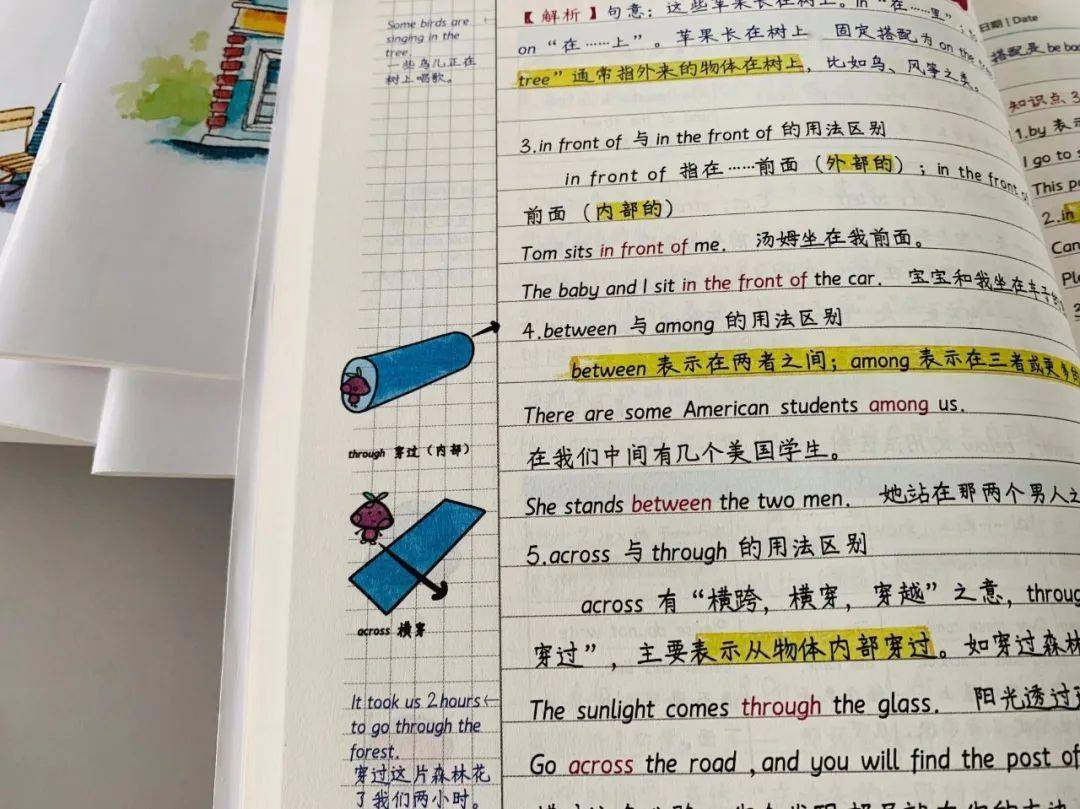 Some birds are
singing in the
tree.
一些鸟儿正在
树上唱歌。
through 穿过（内部）
across 横穿
It took us 2 hours
to go through the
forest.
穿过这片森林花
了我们两小时。
【解析】句意：这些苹果长在树上。in“在……里”；
on“在……上”。苹果长在树上 固定搭配为 on the
tree”通常指外来的物体在树上，比如鸟、风筝之类。
3.in front of 与 in the front of 的用法区别
in front of 指在……前面（外部的）；in the front of
前面（内部的）
Tom sits in front of me. 汤姆坐在我前面。
The baby and I sit in the front of the car. 宝宝和我坐在车子
4.between 与 among 的用法区别
between 表示在两者之间；among 表示在三者或更多
There are some American students among us.
在我们中间有几个美国学生。
She stands between the two men. 她站在那两个男人之
5.across 与 through 的用法区别
across 有“横跨，横穿，穿越”之意，throug
穿过”，主要表示从物体内部穿过。如穿过森林
The sunlight comes through the glass. 阳光透过
Go across the road ,and you will find the post of
日期 | Date
搭配是 be
知识点 3
1.by 表示
I go to
This
2.in
Can